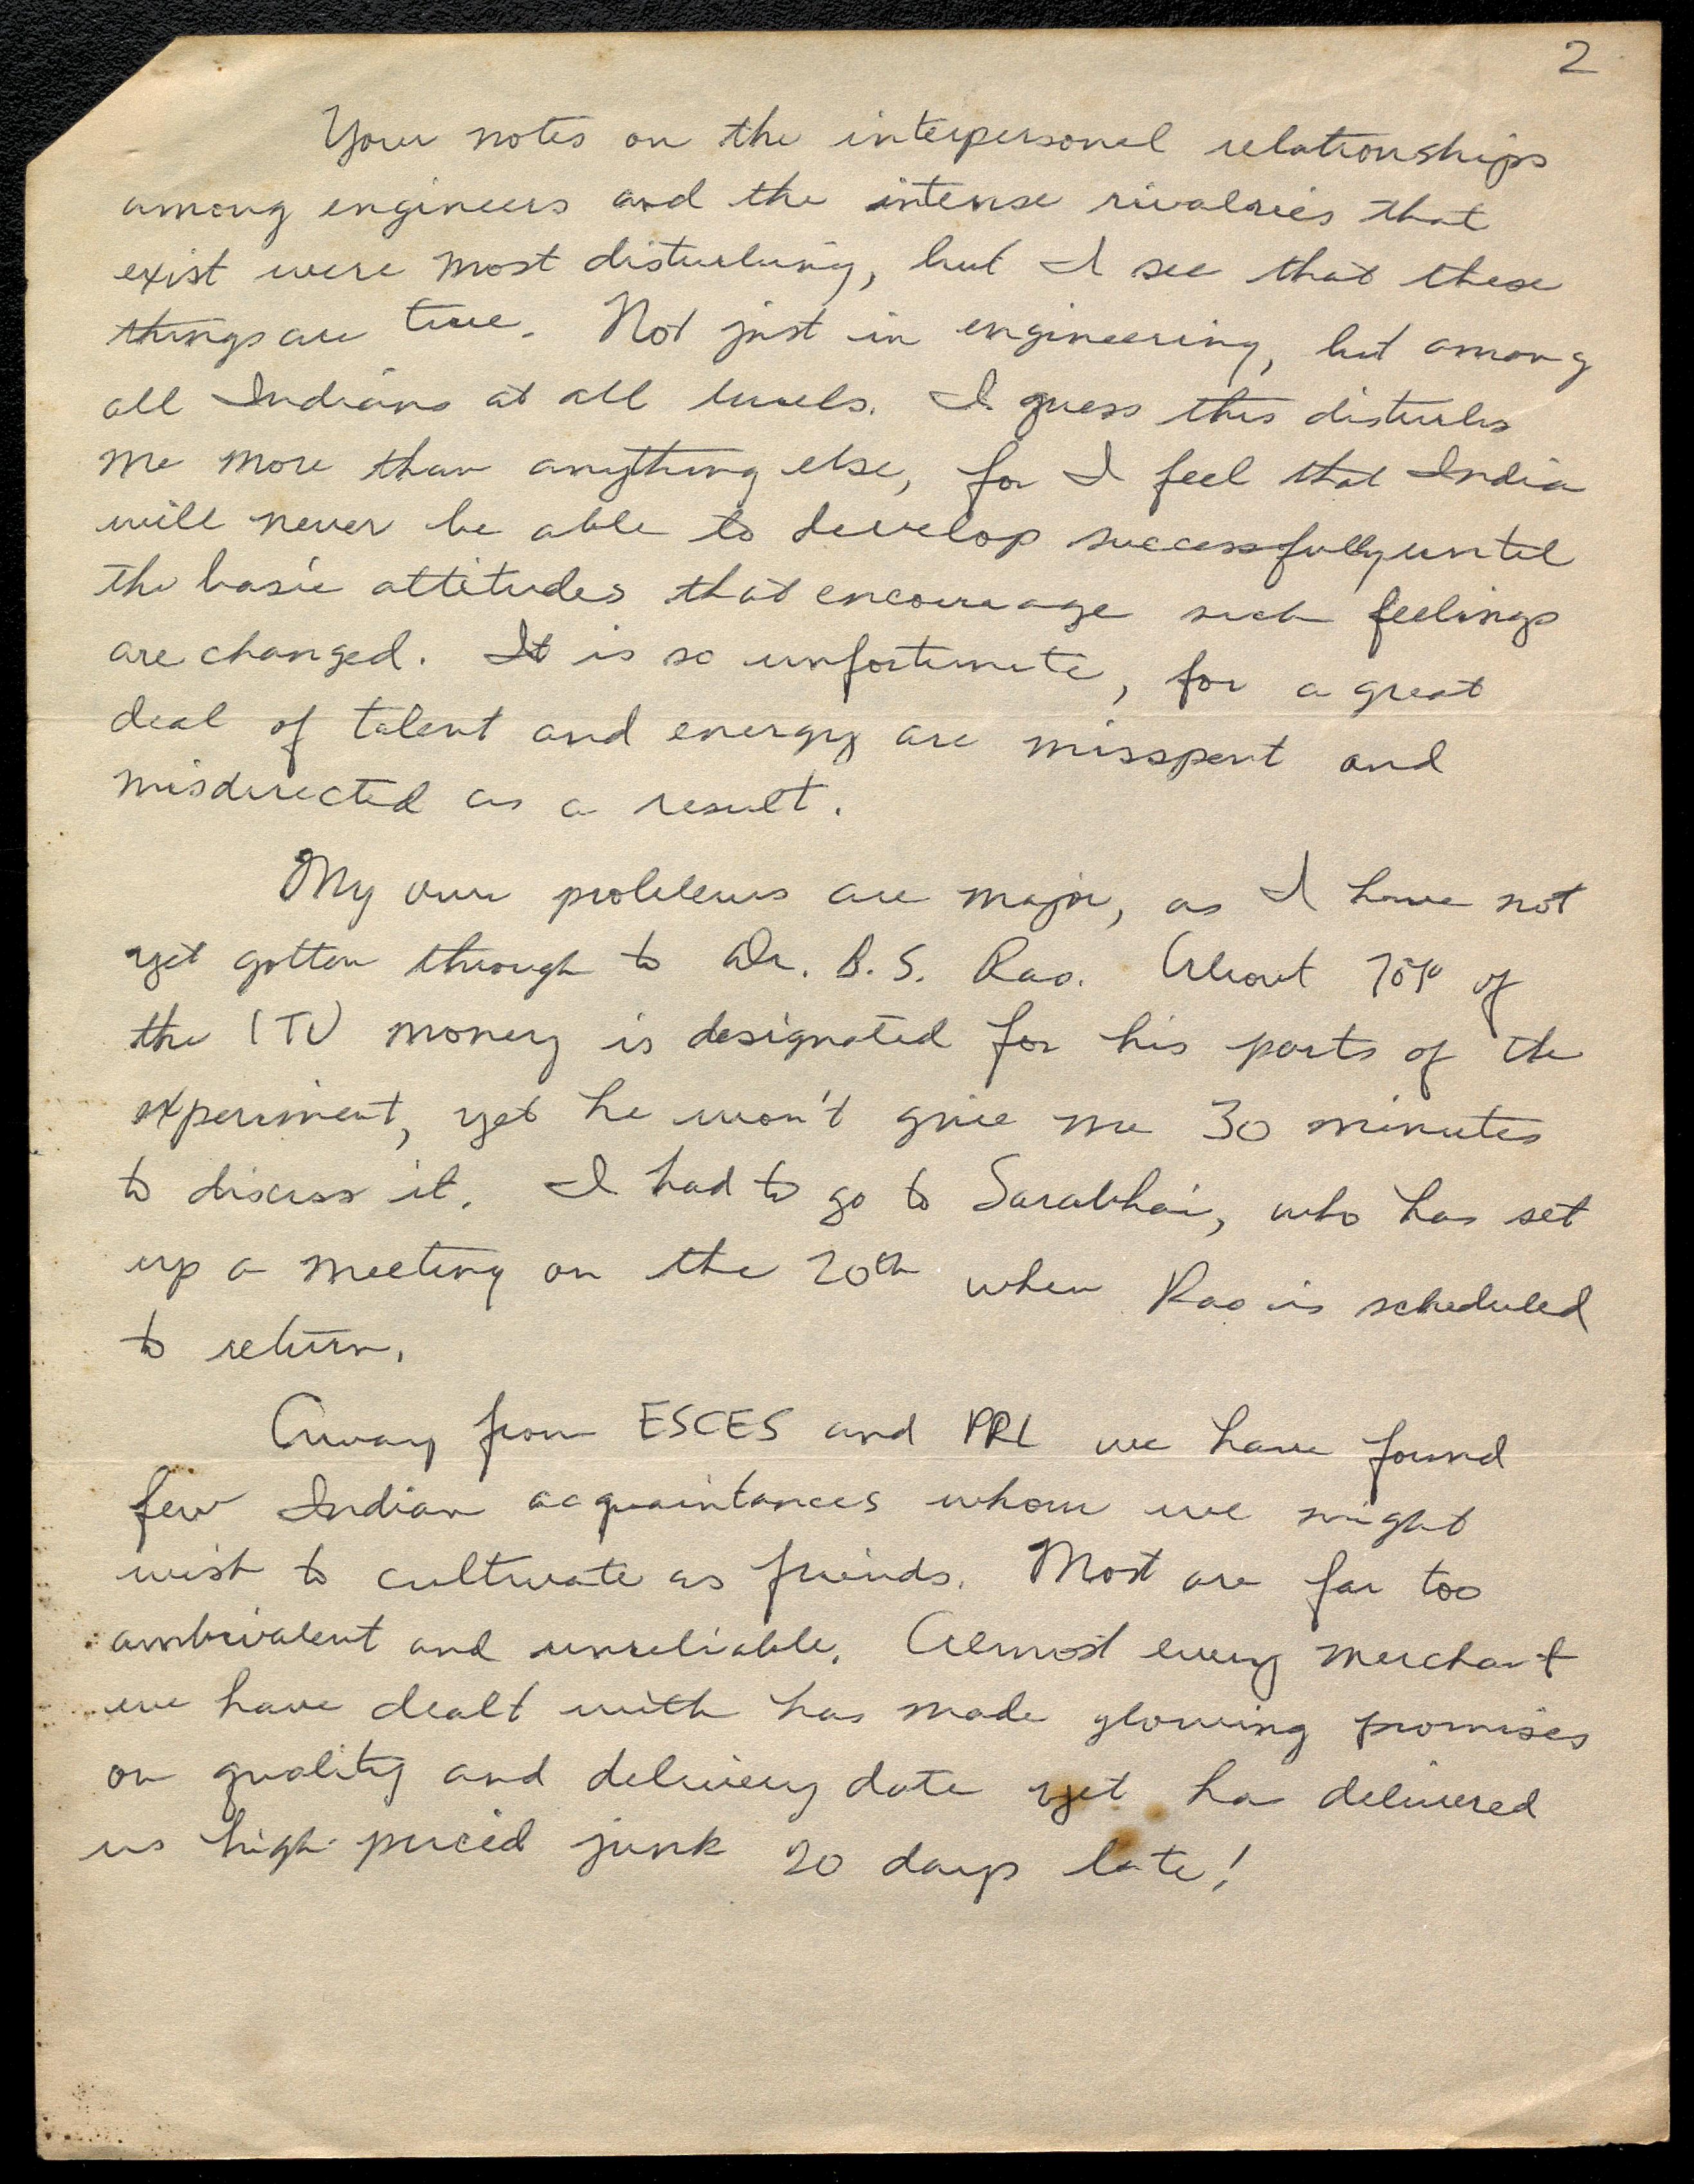 2
Your notes on the interpersonal relationships
among engineers and the intense rivalries that
exist were most disturbing, but I see that these
things are true. Not just in engineering, but among
all Indians at all levels. I guess this disturbs
me more than anything else, for I feel that India
will never be able to develop successfully until
the basic attitudes that encourage such feelings
are changed. It is so unfortunate, for a great
deal of talent and energy are misspent and
misdirected as a result.
My own problems are major, as I have not
yet gotten through to Dr. B. S. Rao. About % of
the ITV money is designated for his parts of the
experiment, yet he won't give me 30 minutes
to discuss it. I had to go to Sarabhai, who has set
up a meeting on the 20th when Rao is scheduled
to return.
Away from ESCES and PRL we have found
few Indian acquaintances whom we might
wish to cultivate as friends. Most are far too
ambivalent and unreliable. Almost every merchant
we have dealt with has made glowing promises
on quality and delivery date yet has delivered
us high priced junk 20 days late!